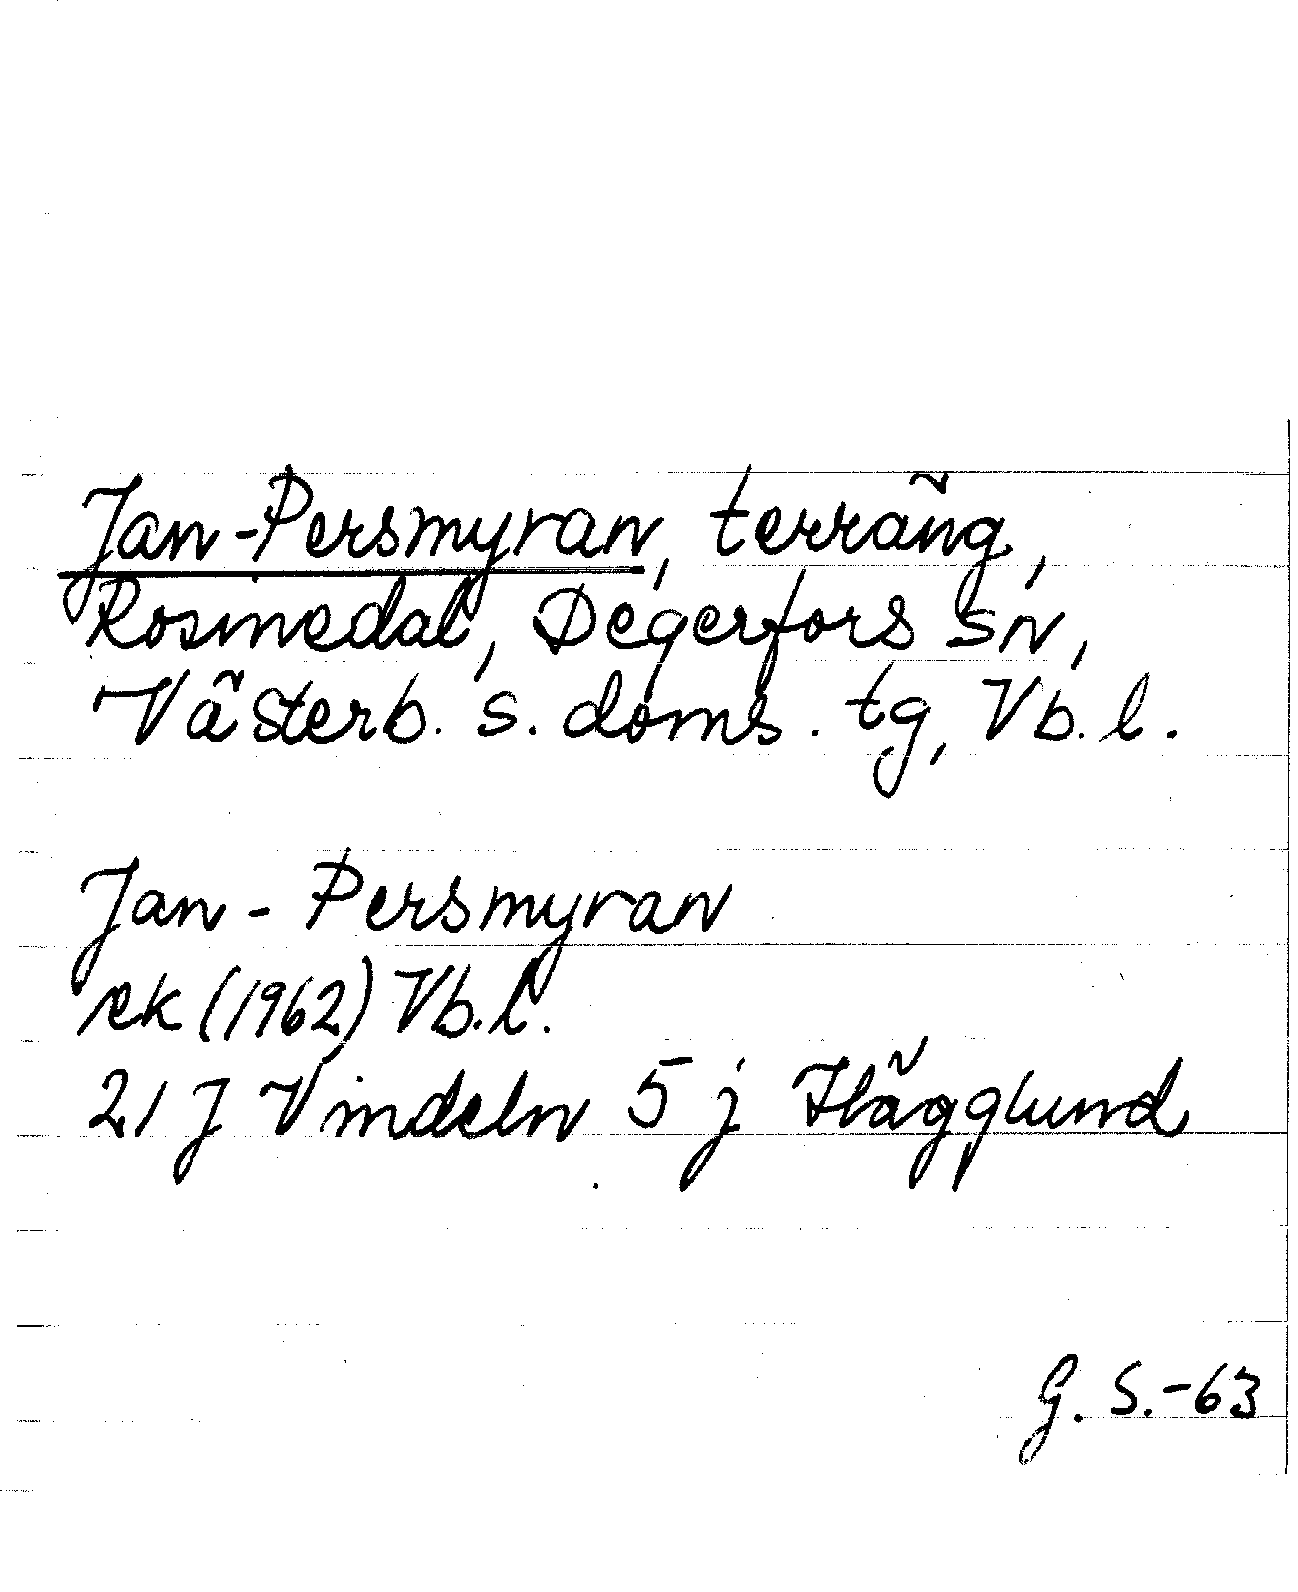 Jan-Persmyran, terräng,
Rosinedal, Degerfors sn,
Västerb. s. doms. tg, Vb. l.
Jan-Persmyran
ek (1962) Vb. l.
21 J Vindeln 5 j Hägglund
G. S.-63